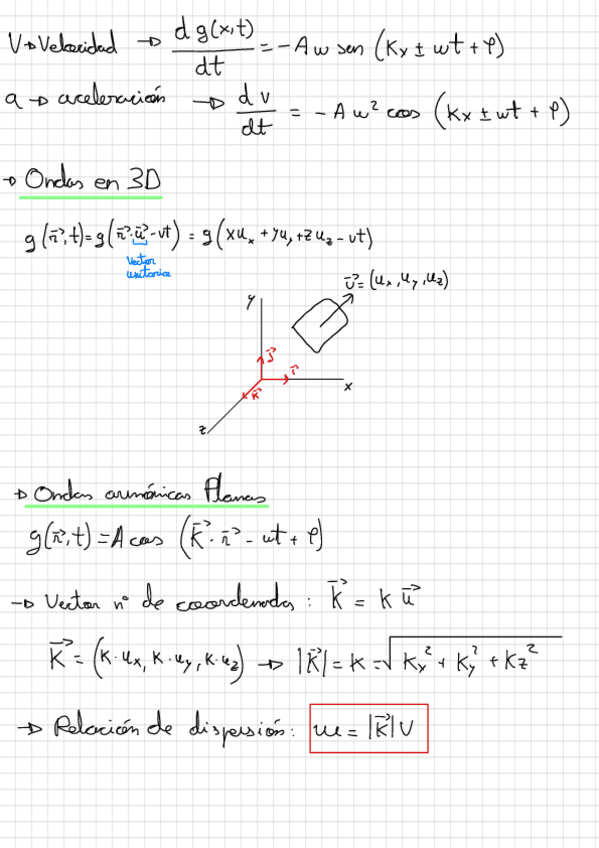 V → Velocidad → d g(x,t) / dt = -A w sen (Kx ± wt + φ)
a → aceleración → d v / dt = - A w² cos (Kx ± wt + φ)
→ Ondas en 3D
g(r⃗,t) = g(r⃗·u⃗ - vt) = g(xuₓ + yuᵧ + zu_z - vt)
vector
unitario
y
u⃗ = (uₓ, uᵧ, u_z)
j⃗
i⃗
k⃗
x
z
→ Ondas armónicas Planas
g(r⃗,t) = A cos (K⃗ · r⃗ - wt + φ)
→ Vector nº de coordenadas : K⃗ = K u⃗
K⃗ = (K·uₓ, K·uᵧ, K·u_z) → |K⃗| = K = √(Kₓ² + Kᵧ² + K_z²)
→ Relación de dispersión: w = |K⃗| V